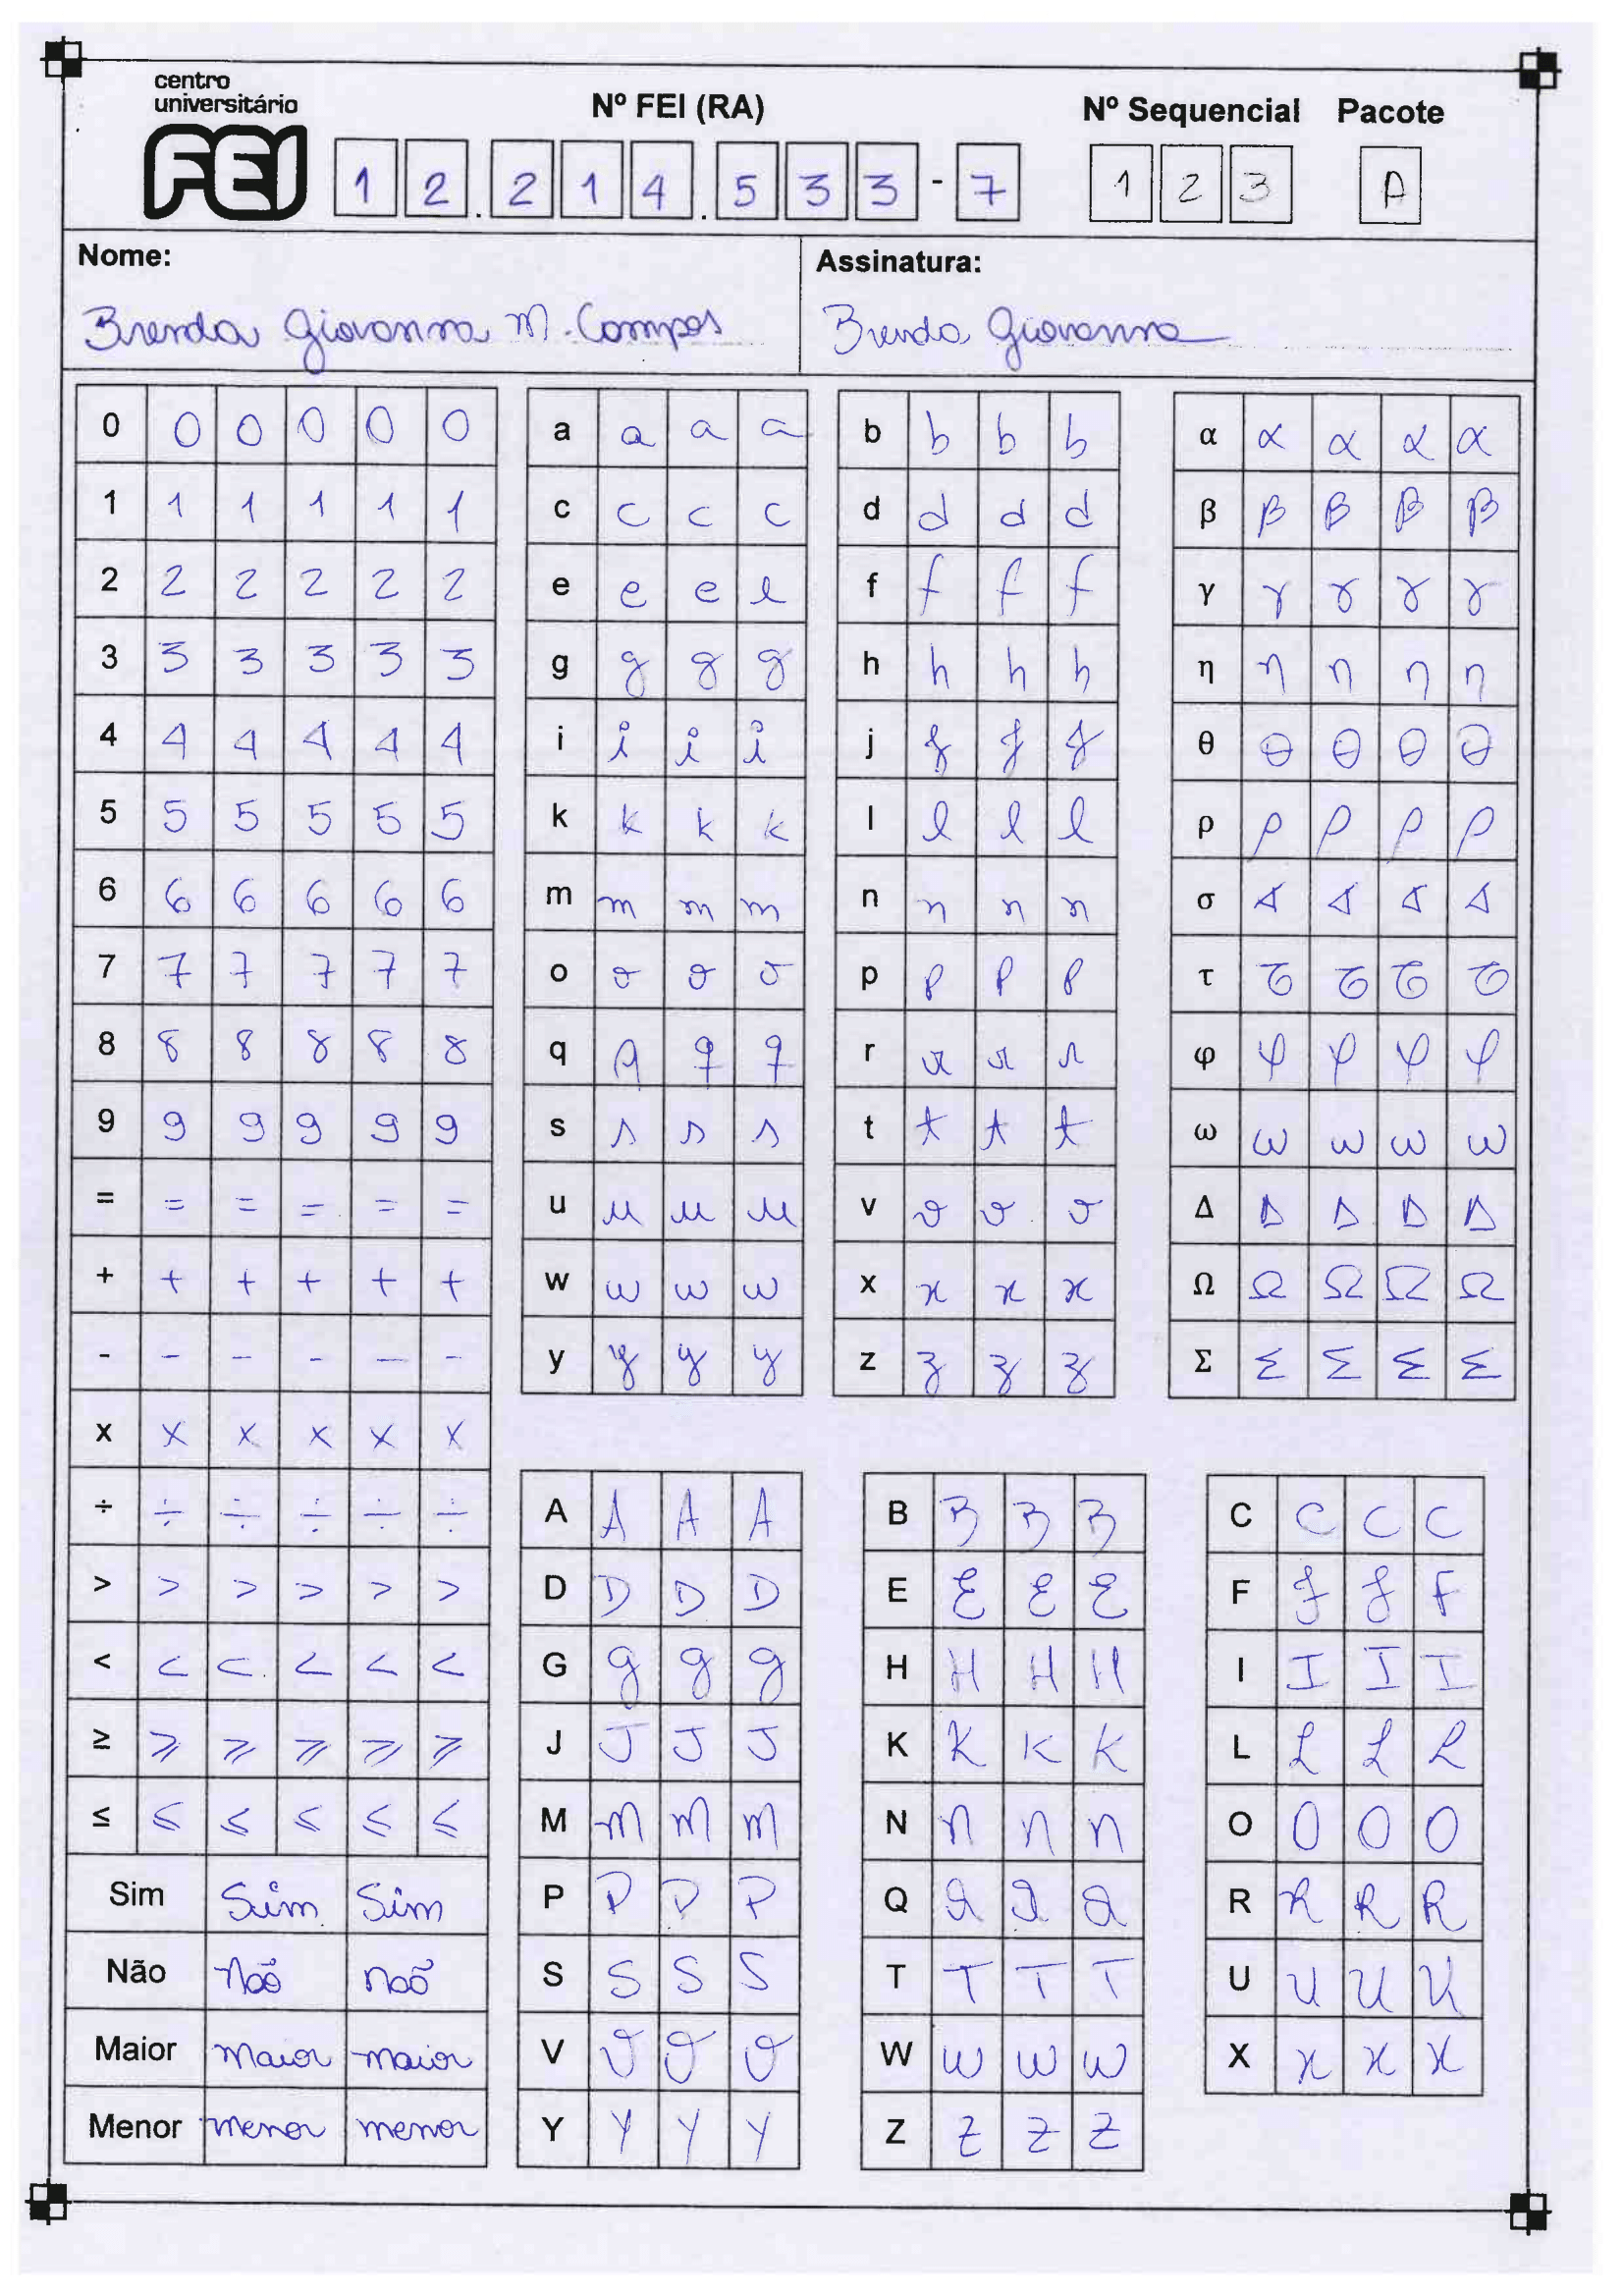 centro
universitário
FEI
Nº FEI (RA)
Nº Sequencial Pacote
1 2 . 2 1 4 . 5 3 3 - 7
1 2 3 A
Nome:
Brenda Giovanna M. Campos
Assinatura:
Brenda Giovanna
0 0 0 0 0 0
1 1 1 1 1 1
2 2 2 2 2 2
3 3 3 3 3 3
4 4 4 4 4 4
5 5 5 5 5 5
6 6 6 6 6 6
7 7 7 7 7 7
8 8 8 8 8 8
9 9 9 9 9 9
= = = = = =
+ + + + + +
- - - - - -
x x x x x x
÷ ÷ ÷ ÷ ÷ ÷
> > > > > >
< < < < < <
≥ ≥ ≥ ≥ ≥ ≥
≤ ≤ ≤ ≤ ≤ ≤
Sim Sim Sim
Não Não não
Maior maior maior
Menor menor menor
a a a a
c c c c
e e e e
g g g g
i i i i
k k k k
m m m m
o o o o
q q q q
s s s s
u u u u
w w w w
y y y y
b b b b
d d d d
f f f f
h h h h
j j j j
l l l l
n n n n
p p p p
r r r r
t t t t
v v v v
x x x x
z z z z
α α α α α
β β β β β
γ γ γ γ γ
η η η η η
θ θ θ θ θ
ρ ρ ρ ρ ρ
σ σ σ σ σ
τ τ τ τ τ
φ φ φ φ φ
ω ω ω ω ω
Δ Δ Δ Δ Δ
Ω Ω Ω Ω Ω
Σ Σ Σ Σ Σ
A A A A
D D D D
G G G G
J J J J
M M M M
P P P P
S S S S
V V V V
Y Y Y Y
B B B B
E E E E
H H H H
K K K K
N N N N
Q Q Q Q
T T T T
W W W W
Z Z Z Z
C C C C
F F F F
I I I I
L L L L
O O O O
R R R R
U U U U
X X X X